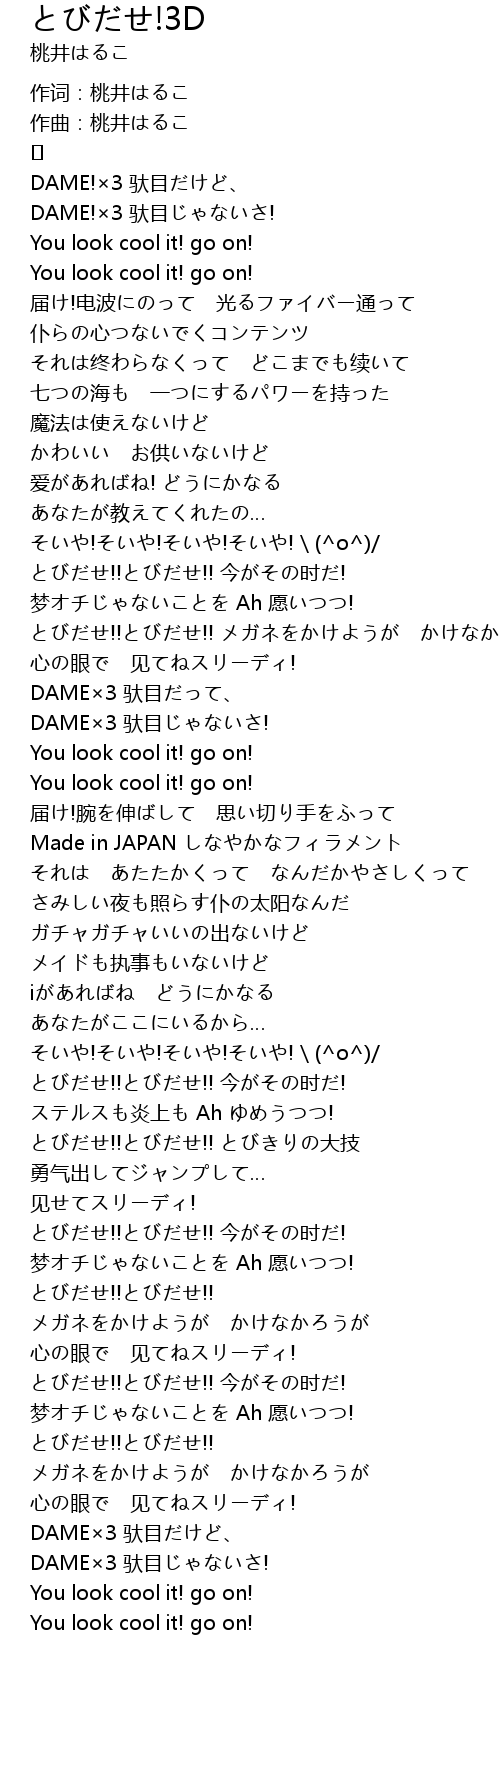 とびだせ!3D
桃井はるこ
作词：桃井はるこ
作曲：桃井はるこ
[]
DAME!×3 驮目だけど、
DAME!×3 驮目じゃないさ!
You look cool it! go on!
You look cool it! go on!
届け!电波にのって　光るファイバー通って
仆らの心つないでくコンテンツ
それは终わらなくって　どこまでも续いて
七つの海も　一つにするパワーを持った
魔法は使えないけど
かわいい　お供いないけど
爱があればね! どうにかなる
あなたが教えてくれたの...
そいや!そいや!そいや!そいや! \ (^o^)/
とびだせ!!とびだせ!! 今がその时だ!
梦オチじゃないことを Ah 愿いつつ!
とびだせ!!とびだせ!! メガネをかけようが　かけなか
心の眼で　见てねスリーディ!
DAME×3 驮目だって、
DAME×3 驮目じゃないさ!
You look cool it! go on!
You look cool it! go on!
届け!腕を伸ばして　思い切り手をふって
Made in JAPAN しなやかなフィラメント
それは　あたたかくって　なんだかやさしくって
さみしい夜も照らす仆の太阳なんだ
ガチャガチャいいの出ないけど
メイドも执事もいないけど
iがあればね　どうにかなる
あなたがここにいるから...
そいや!そいや!そいや!そいや! \ (^o^)/
とびだせ!!とびだせ!! 今がその时だ!
ステルスも炎上も Ah ゆめうつつ!
とびだせ!!とびだせ!! とびきりの大技
勇气出してジャンプして...
见せてスリーディ!
とびだせ!!とびだせ!! 今がその时だ!
梦オチじゃないことを Ah 愿いつつ!
とびだせ!!とびだせ!!
メガネをかけようが　かけなかろうが
心の眼で　见てねスリーディ!
とびだせ!!とびだせ!! 今がその时だ!
梦オチじゃないことを Ah 愿いつつ!
とびだせ!!とびだせ!!
メガネをかけようが　かけなかろうが
心の眼で　见てねスリーディ!
DAME×3 驮目だけど、
DAME×3 驮目じゃないさ!
You look cool it! go on!
You look cool it! go on!